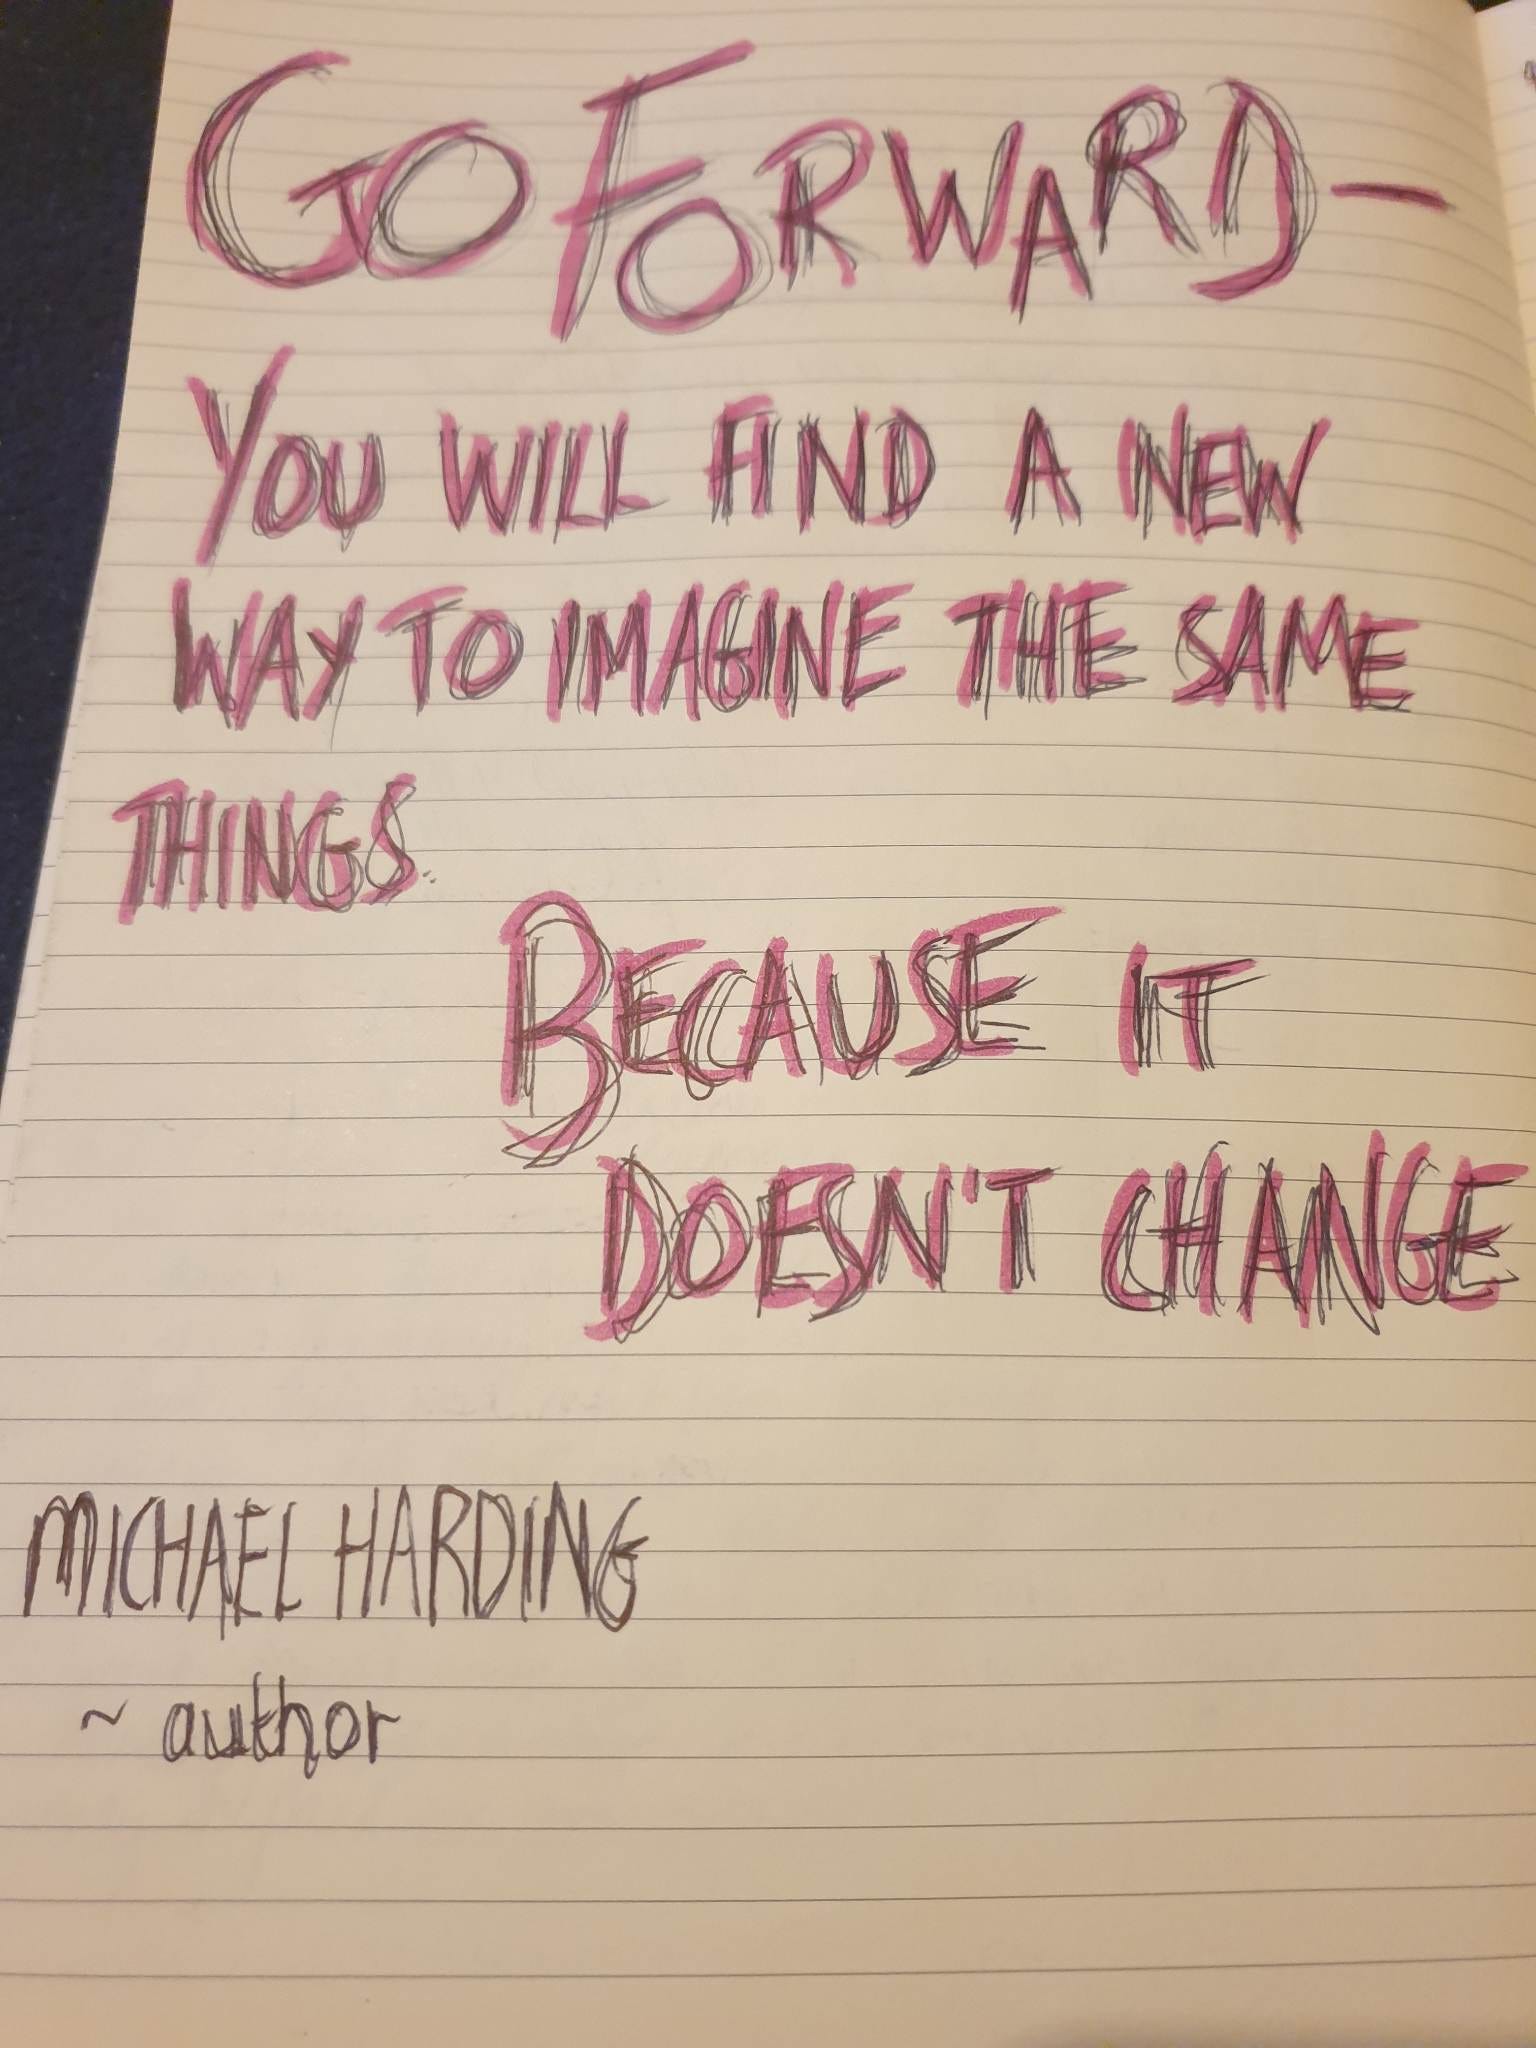 GO FORWARD—
YOU WILL FIND A NEW
WAY TO IMAGINE THE SAME
THINGS..
BECAUSE IT
DOESN'T CHANGE
MICHAEL HARDING
~ author